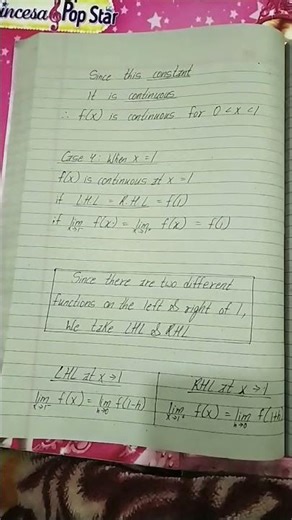 incesa Pop Star
Since this constant
It is continuous
∴ f(x) is continuous for 0 < x < 1
Case 4: When x = 1
f(x) is continuous at x = 1
if LHL = RHL = f(1)
if lim x→1⁻ f(x) = lim x→1⁺ f(x) = f(1)
Since there are two different
functions on the left & right of 1,
We take LHL & RHL
LHL at x → 1
lim x→1⁻ f(x) = lim h→0 f(1-h)
RHL at x → 1
lim x→1⁺ f(x) = lim h→0 f(1+h)